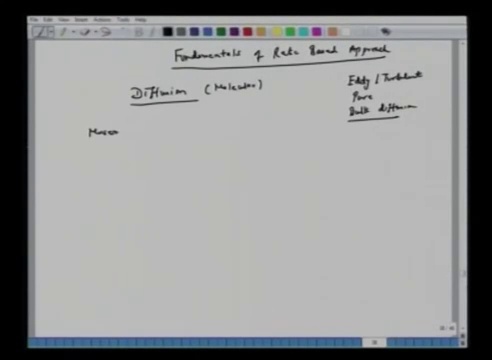 File Edit View Insert Actions Tools Help
Fundamentals of Rate Based Approach
Diffusion (Molecular)
Eddy / Turbulent
Pore
Bulk diffusion
Macro